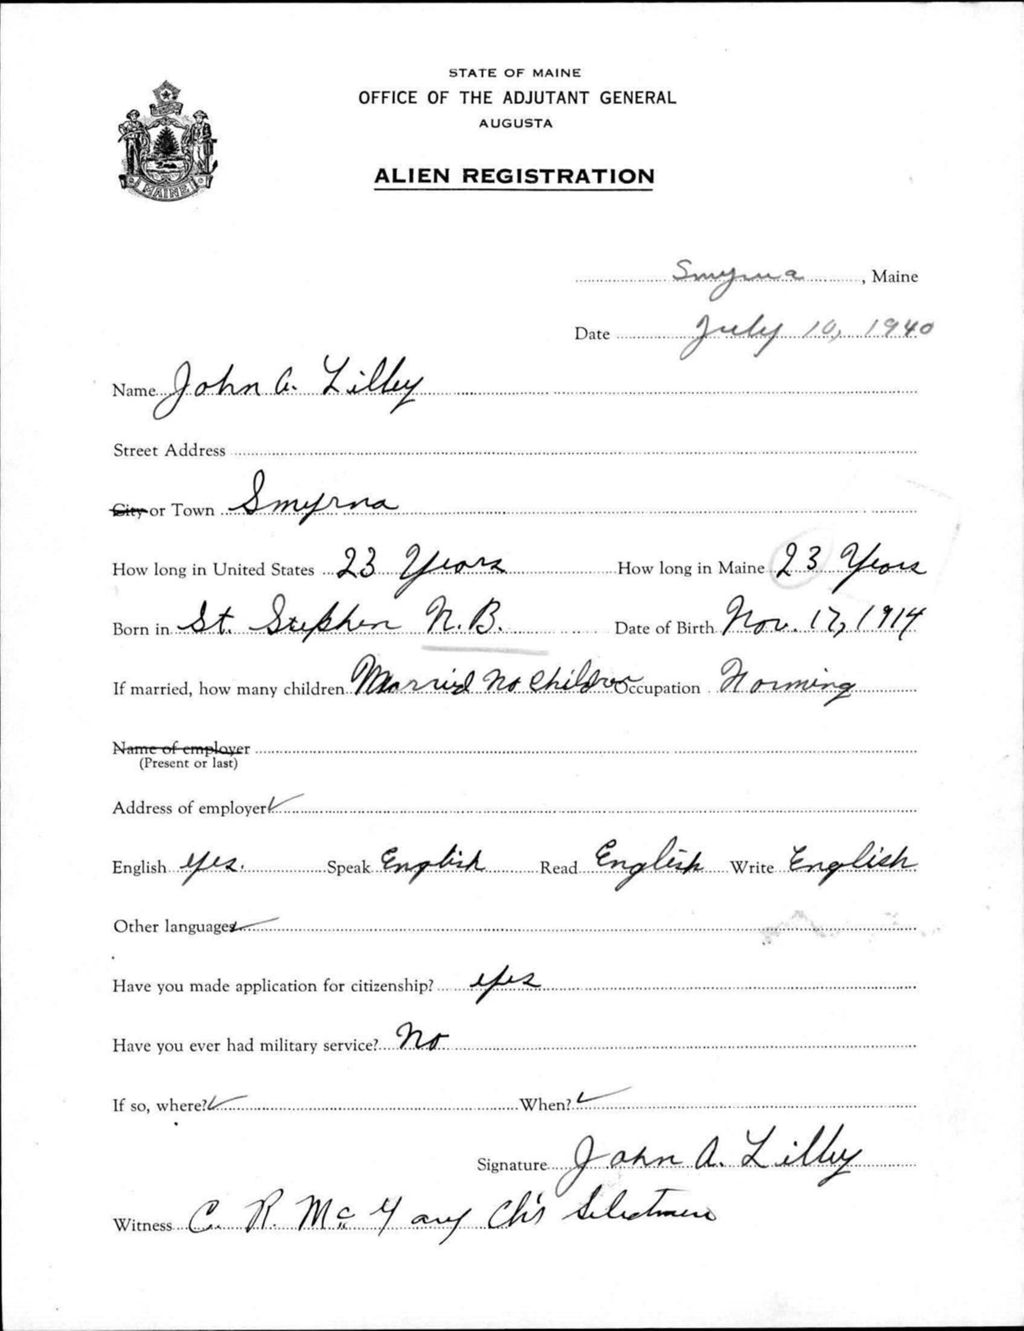 STATE OF MAINE
OFFICE OF THE ADJUTANT GENERAL
AUGUSTA
ALIEN REGISTRATION
MAINE
Smyrna, Maine
Date July 10, 1940
Name John A. Lilley
Street Address
City or Town Smyrna
How long in United States 23 Years How long in Maine 23 Years
Born in St. Stephen N.B. Date of Birth Nov. 17, 1914
If married, how many children Married No Children Occupation
Name of employer
(Present or last)
Address of employer
English yes. Speak English Read English Write English
Other languages
Have you made application for citizenship? yes
Have you ever had military service? No
If so, where? When?
Signature John A. Lilley
Witness C. R. Selectmen